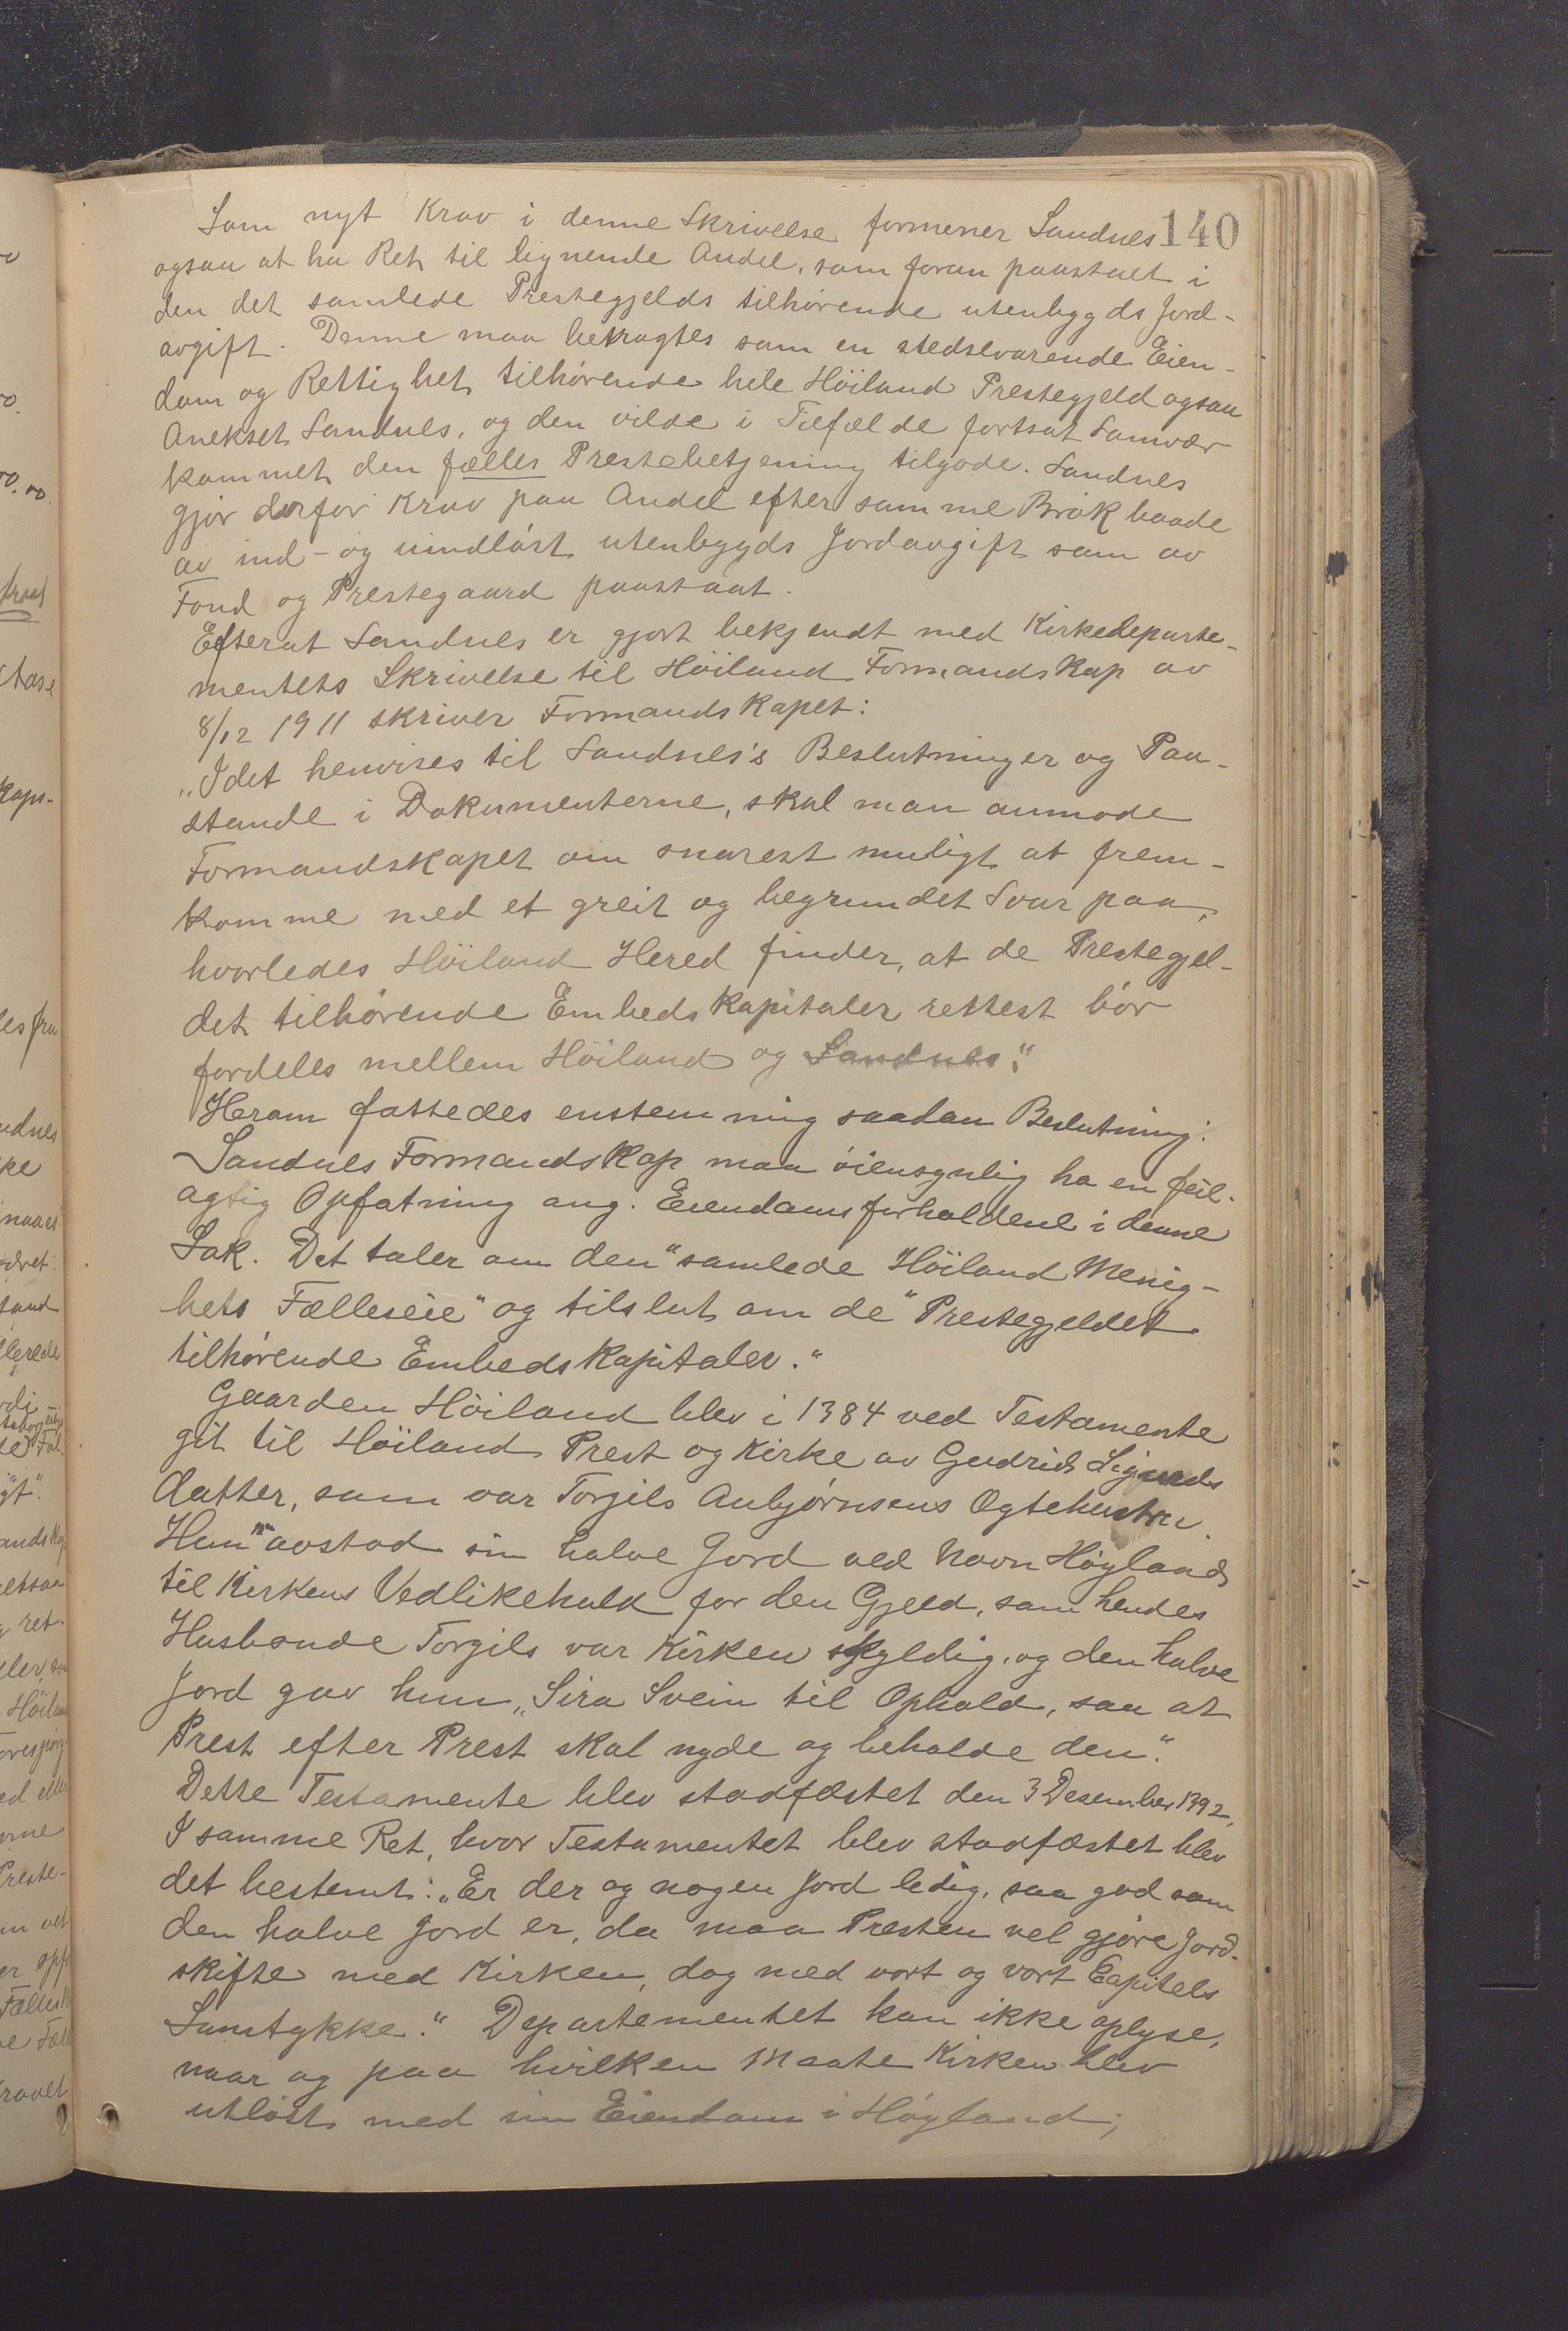 140
Som nyt Krav i denne Skrivelse formener Sandnes
ogsaa at ha Ret til lignende Andel, som foran paastaet i
den det samlede Prestegjelds tilhørende utenbygds Jord-
avgift. Denne maa betragtes som en stedsevarende Eien-
dom og Rettighet tilhørende hele Höiland Prestegjeld ogsaa
Anekset Sandnes, og den vilde i Tilfælde fortsat Samvær
kommet den fælles Prestebetjening tilgode. Sandnes
gjør derfor Krav paa Andel efter samme Brøk baade
av ind- og uindløst utenbygds Jordavgift som av
Fond og Prestegaard paastaat.
Efterat Sandnes er gjort bekjendt med Kirkedeparte-
mentets Skrivelse til Höiland Formandskap av
8/12 1911 skriver Formandskapet:
„Idet henvises til Sandnes's Beslutninger og Paa-
stande i Dokumenterne, skal man anmode
Formandskapet om snarest muligt at frem-
komme med et greit og begrundet Svar paa,
hvorledes Höiland Hered finder, at de Prestegjel-
det tilhørende Embedskapitaler rettest bør
fordeles mellem Höiland og Sandnes."
Herom fattedes enstemmig saadan Beslutning:
Sandnes Formandskap maa øiensynlig ha en feil-
agtig Opfatning ang. Eiendomsforholdene i denne
Sak. Det taler om den "samlede Höiland Menig-
hets Fælleseie" og tilslut om de "Prestegjeldet
tilhørende Embedskapitaler."
Gaarden Höiland blev i 1384 ved Testamente
git til Höiland Prest og Kirke av Gudrid Sigurds
datter, som var Torgils Anbjørnsens Ogtehustru.
Hun "avstod sin halve Jord ved Navn Høyland
til Kirkens Vedlikehold for den Gjeld, som hendes
Husbonde Torgils var Kirken skyldig, og den halve
Jord gav hun „Sira Svein til Ophold, saa at
Prest efter Prest skal nyde og beholde den".
Dette Testamente blev stadfæstet den 3 Desember 1392,
I samme Ret, hvor Testamentet blev stadfæstet blev
det bestemt: „Er der og nogen Jord ledig, saa god som
den halve Jord er, da maa Presten vel gjøre Jord-
skifte med Kirken, dog med vort og vort Capitels
Samtykke." Departementet kan ikke oplyse,
naar og paa hvilken Maate Kirken blev
utløst med sin Eiendom i Høyland;